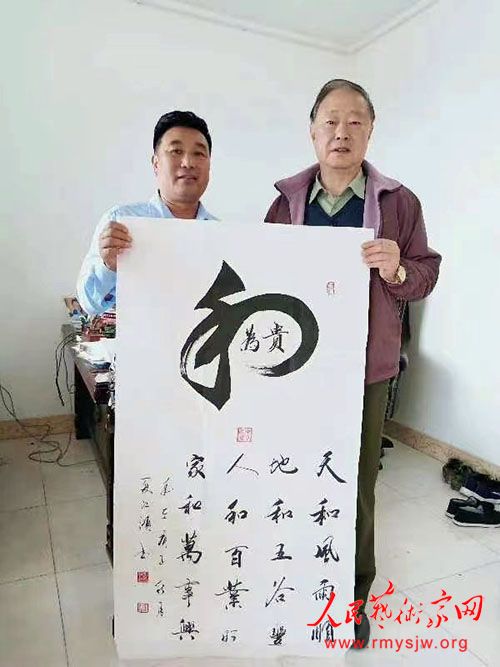 和
為貴
天和風雨順
地和五谷豐
人和百業
家和萬事興
人民艺术家网
www.rmysjw.org